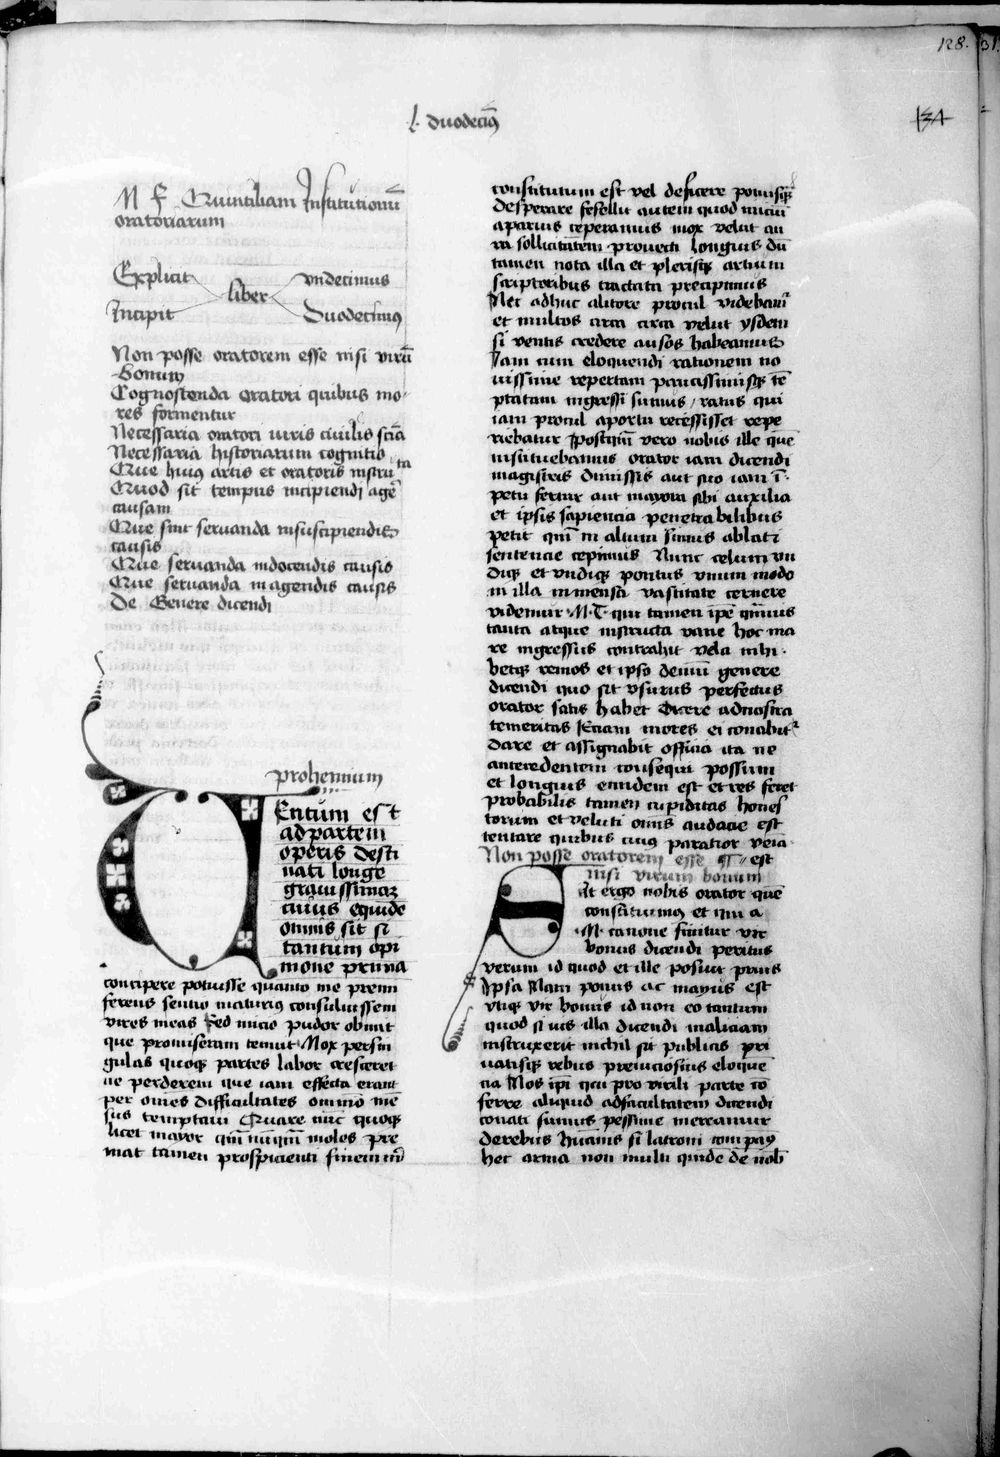 128.
l. duodecīꝰ
134
M F Quintiliani Institutionū
oratoriarum
Explicit liber vndecimus
Incipit Duodecimꝰ
Non posse oratorem esse nisi virū
Bonum
Cognoscenda oratori quibus mo
res formentur
Necessaria oratori iuris ciuilis sciā
Necessaria historiarum cognitio
Que huiꝰ artis et oratoris instru
ta
Quod sit tempus incipiendi agē
causam
Que sint seruanda insuscipiendis
causis
Que seruanda indocendis causis
Que seruanda in agendis causis
De Genere dicendi
prohemium
Entum est
ad partem
operis desti
nati longe
grauissimaꝫ
cuius equidē
omnis sit si
tantum opi
mone prima
concipere potuisse quanto me premi
ferens sentio maturiꝰ consuluissem
vires meas Sed inicio pudor obmit
que promiseram tenuit Mox persin
gulas quoqꝫ partes labor cresceret
ne perderem que iam effecta erant
per omēs difficultates omīno mē
sus temptaui Quare nūc quoqꝫ
licet mayor qm̄ nūqm̄ moles pre
mat tamen prospicienti finem m̄
constitutum est vel deficere pocius qꝫ
desperare fefellit autem quod iniciū
aparuis ceperamus mox velut au
ra sollicitātem prouecti longius dū
tamen nota illa et plerisqꝫ artium
scriptoribus tractata precipimus
Nec adhuc alitore procul videbam̄
et multos circa circa velut ysdem
si ventis credere ausos habeamus
Jam cum eloquendi rationem no
uissime repertam paucissimisqꝫ tē
ptatam ingressi sumus, ratus qui
iam procul aportu recessisset repe
riebatur Postqm̄ vero nobis ille quē
instituebamus orator iam dicendi
magistris dimissis aut suo iam ī
petu fertur aut mayora sibi auxilia
et ipsis sapiencia penetrabilibus
petit qm̄ in altum simus ablati
sentencie cepimus Nunc celum vn
diqꝫ et vndiqꝫ pontus vnum modo
in illa inmensa vastitate cernere
videmur .M.T. qui tamen ip̄e qm̄uis
tanta atque instructa naue hoc ma
re ingressus contrahit vela inhi
betqꝫ remos et ipso demū genere
dicendi quo sit vsurus perfectus
orator satis habet dicere adnostra
temeritas Etiam mores ei conabit
dare et assignabit officia ita ne
antecedentem consequi possum
et longius eundem est et res feret
probabilis tamen cupiditas hones
torum et veluti omīs audacie est
tentare quibus cuiꝰ paratior venia
Non posse oratorem esse est
nisi virum bonum
it ergo nobis orator quē
constituimꝰ et qui a
.M. catone finitur vir
bonus dicendi peritus
verum id quod et ille posuit prius
Ipsa Nam pouis ac mayus est
vtiqꝫ vir bonus id non eo tantum
quod si uis illa dicendi maliciam
instruxerit nichil sit publicis pri
uatisqꝫ rebus perniciosius eloquē
cia Nos ip̄i qui pro virili parte cō
ferre aliquid adfacultatem dicendi
conati sumus pessime mereamur
derebus humanis si latroni comparꝰ
hec arma non multi quide de nob